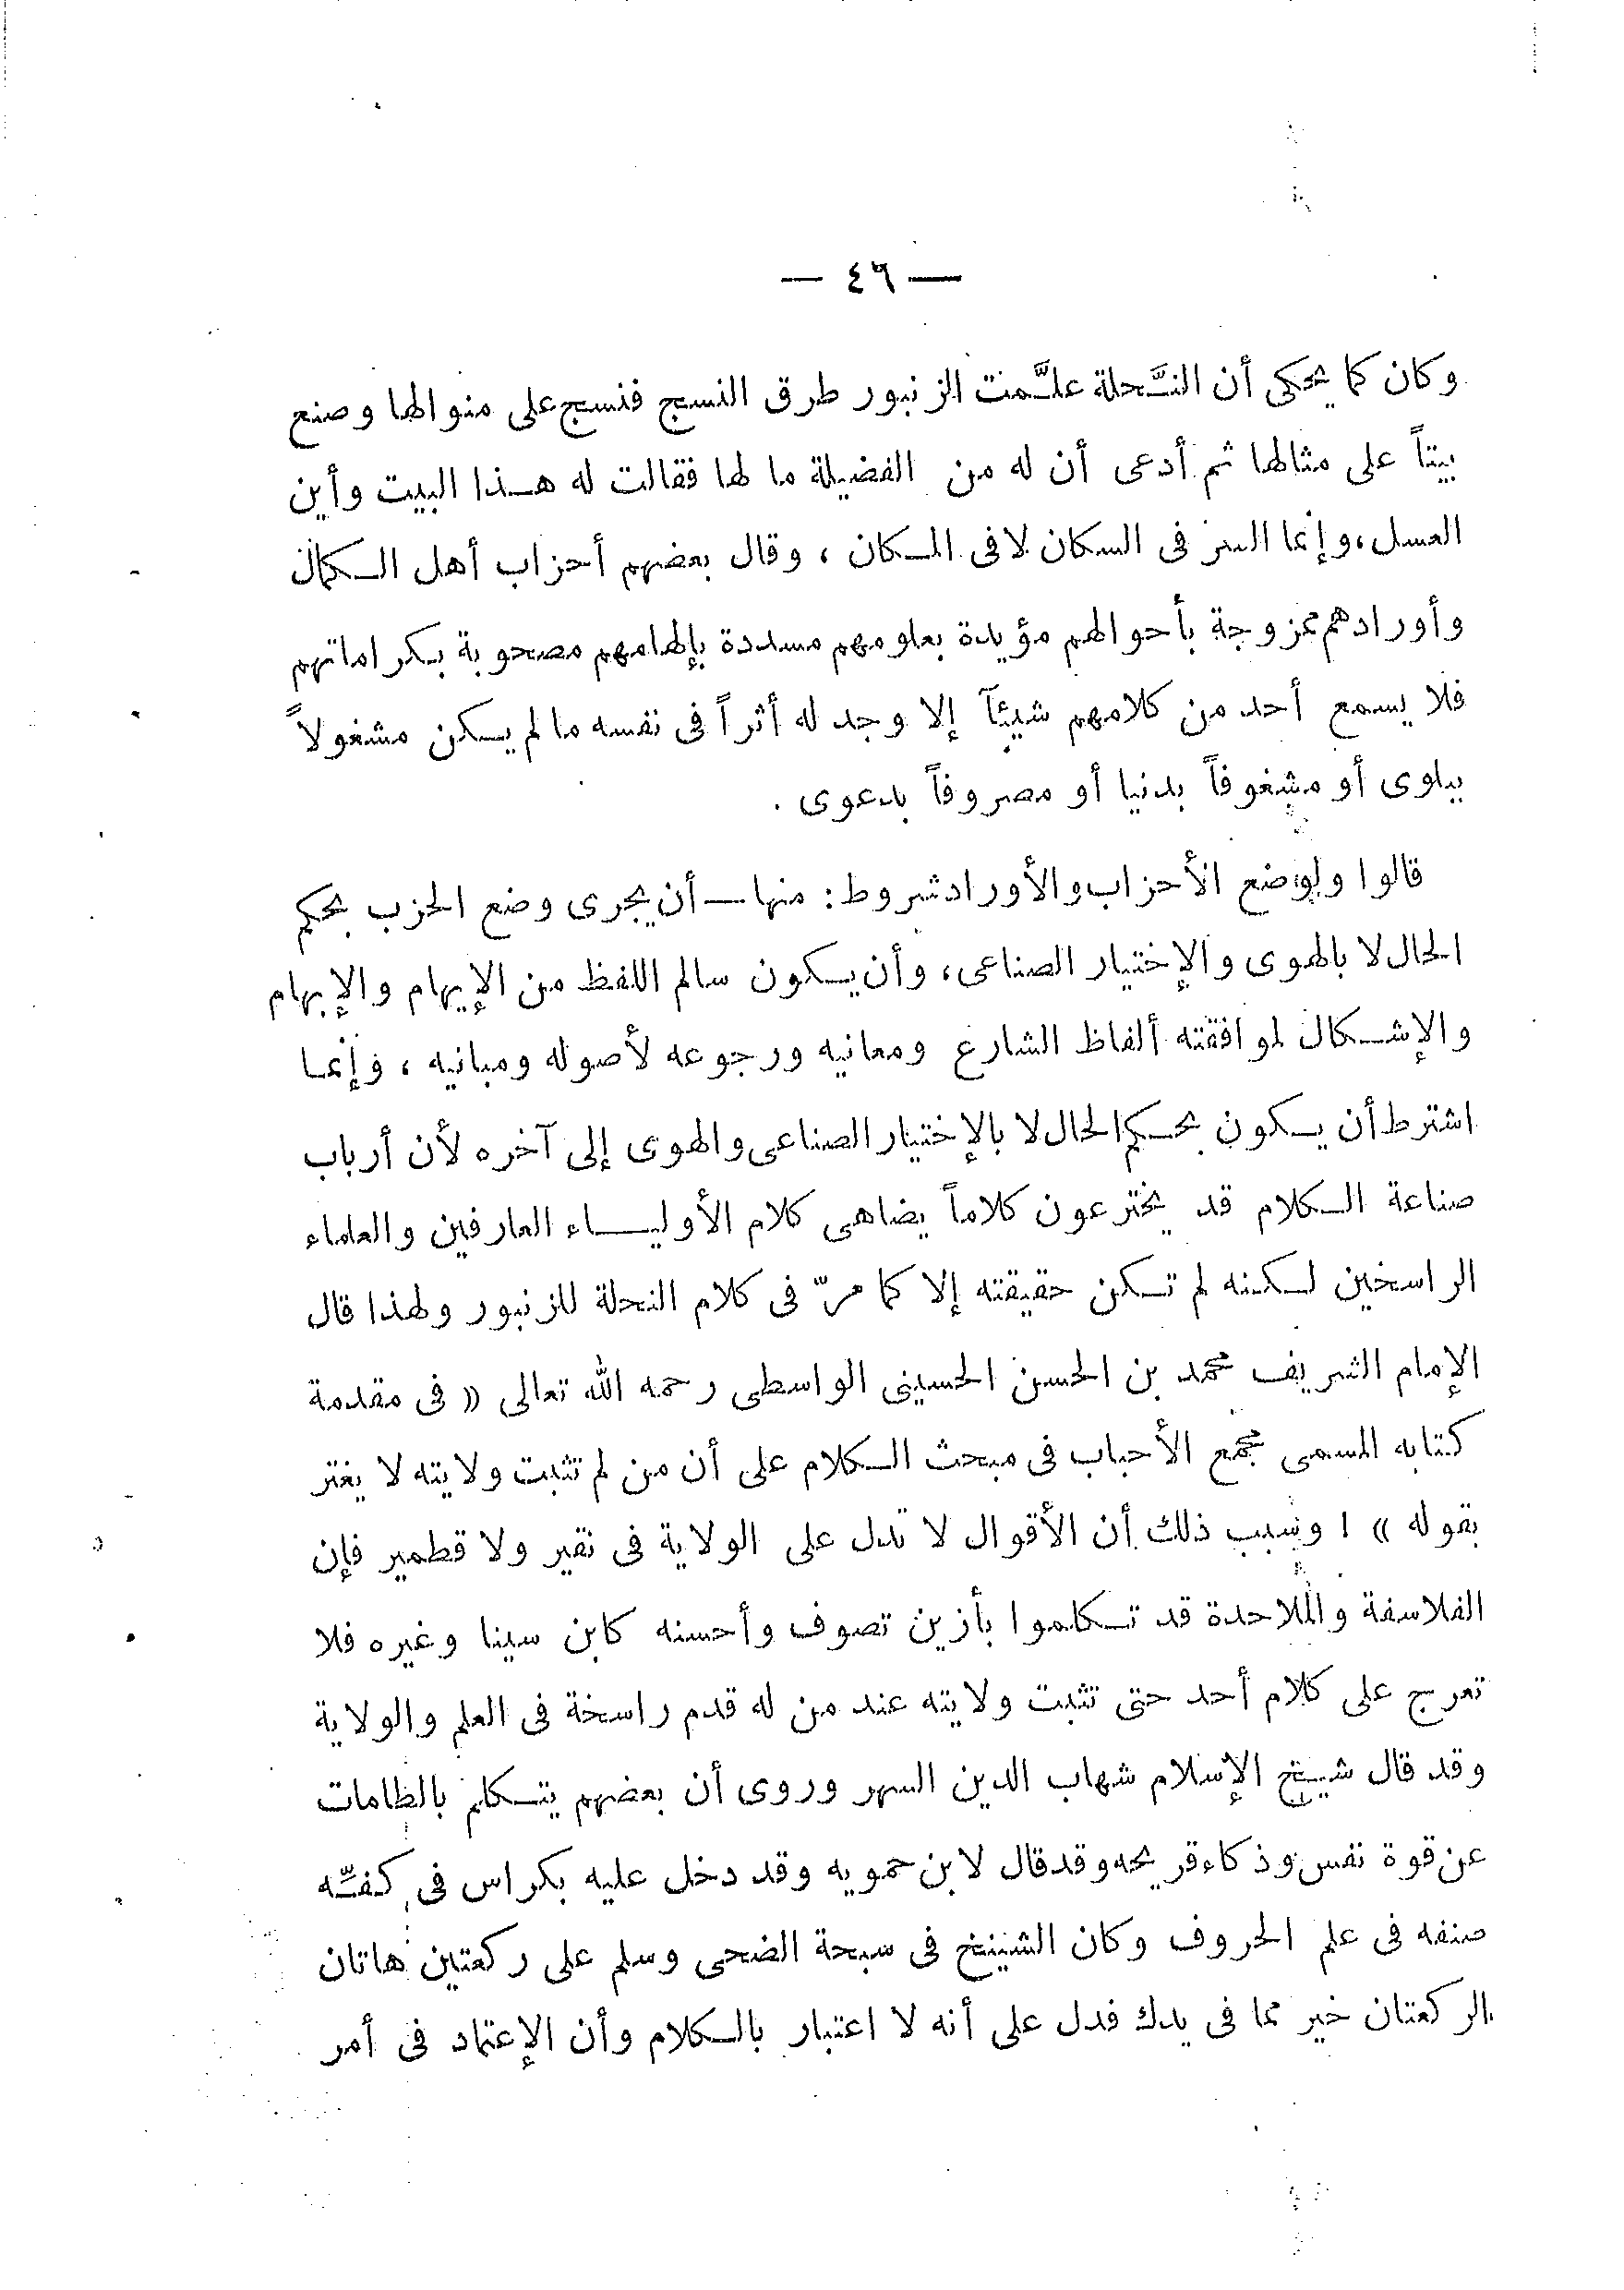 — ٤٦ —
وكان كما يحكى أن النَّحلة علَّمت الزنبور طرق النسج فنسج على منوالها وصنع
بيتاً على مثالها ثم أدعى أن له من الفضيلة ما لها فقالت له هذا البيت وأين
العسل، وإنما السر فى السكان لا فى المكان ، وقال بعضهم أحزاب أهل الكمال
وأورادهم ممزوجة بأحوالهم مؤيدة بعلومهم مسددة بإلهامهم مصحوبة بكراماتهم
فلا يسمع أحد من كلامهم شيئاً إلا وجد له أثراً فى نفسه ما لم يكن مشغولاً
ببلوى أو مشغوفاً بدنيا أو مصروفاً بدعوى .
قالوا ولوضع الأحزاب والأوراد شروط : منها — أن يجرى وضع الحزب بحكم
الحال لا بالهوى والإختيار الصناعى، وأن يكون سالم اللفظ من الإيهام والإبهام
والإشكال لموافقته ألفاظ الشارع ومعانيه ورجوعه لأصوله ومبانيه ، وإنما
اشترط أن يكون بحكم الحال لا بالإختيار الصناعى والهوى إلى آخره لأن أرباب
صناعة الكلام قد يخترعون كلاماً يضاهى كلام الأولياء العارفين والعلماء
الراسخين لكنه لم تكن حقيقته إلا كما مرّ فى كلام النحلة للزنبور ولهذا قال
الإمام الشريف محمد بن الحسن الحسينى الواسطى رحمه الله تعالى « فى مقدمة
كتابه المسمى مجمع الأحباب فى مبحث الكلام على أن من لم تثبت ولايته لا يغتر
بقوله » ! وسبب ذلك أن الأقوال لا تدل على الولاية فى نقير ولا قطمير فإن
الفلاسفة والملاحدة قد تكلموا بأزين تصوف وأحسنه كابن سينا وغيره فلا
تعرج على كلام أحد حتى تثبت ولايته عند من له قدم راسخة فى العلم والولاية
وقد قال شيخ الإسلام شهاب الدين السهروروى أن بعضهم يتكلم بالطامات
عن قوة نفس وذكاء قريحه وقد قال لابن حمويه وقد دخل عليه بكراس فى كفِّه
صنفه فى علم الحروف وكان الشيخ فى سبحة الضحى وسلم على ركعتين هاتان
الركعتان خير مما فى يدك فدل على أنه لا اعتبار بالكلام وأن الإعتماد فى أمر